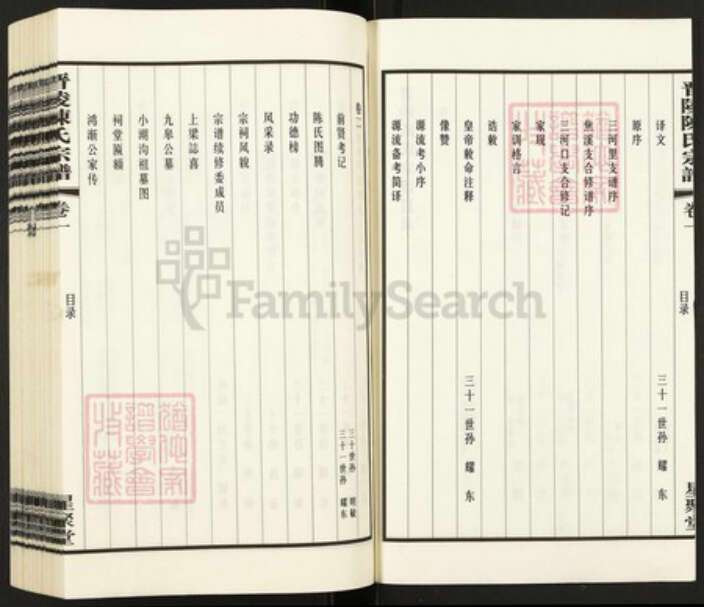 晋陵陳氏宗譜
卷一
目录
星聚堂
译文 三十一世孙 耀东
原序
三河里支谱序
焦溪支合修谱序
三河口支合修记
家规
家训格言
诰敕
皇帝敕命注释 三十一世孙 耀东
像赞
源流考小序
源流备考简译
卷二
前贤考记 三十一世孙 耀东
陈氏图腾
功德榜
风采录
宗祠风貌
宗谱续修委成员
上梁誌喜
九皋公墓
小湖沟祖墓图
祠堂匾额
鸿渐公家传
晋陵陳氏宗譜
卷一
目录
星聚堂
FamilySearch